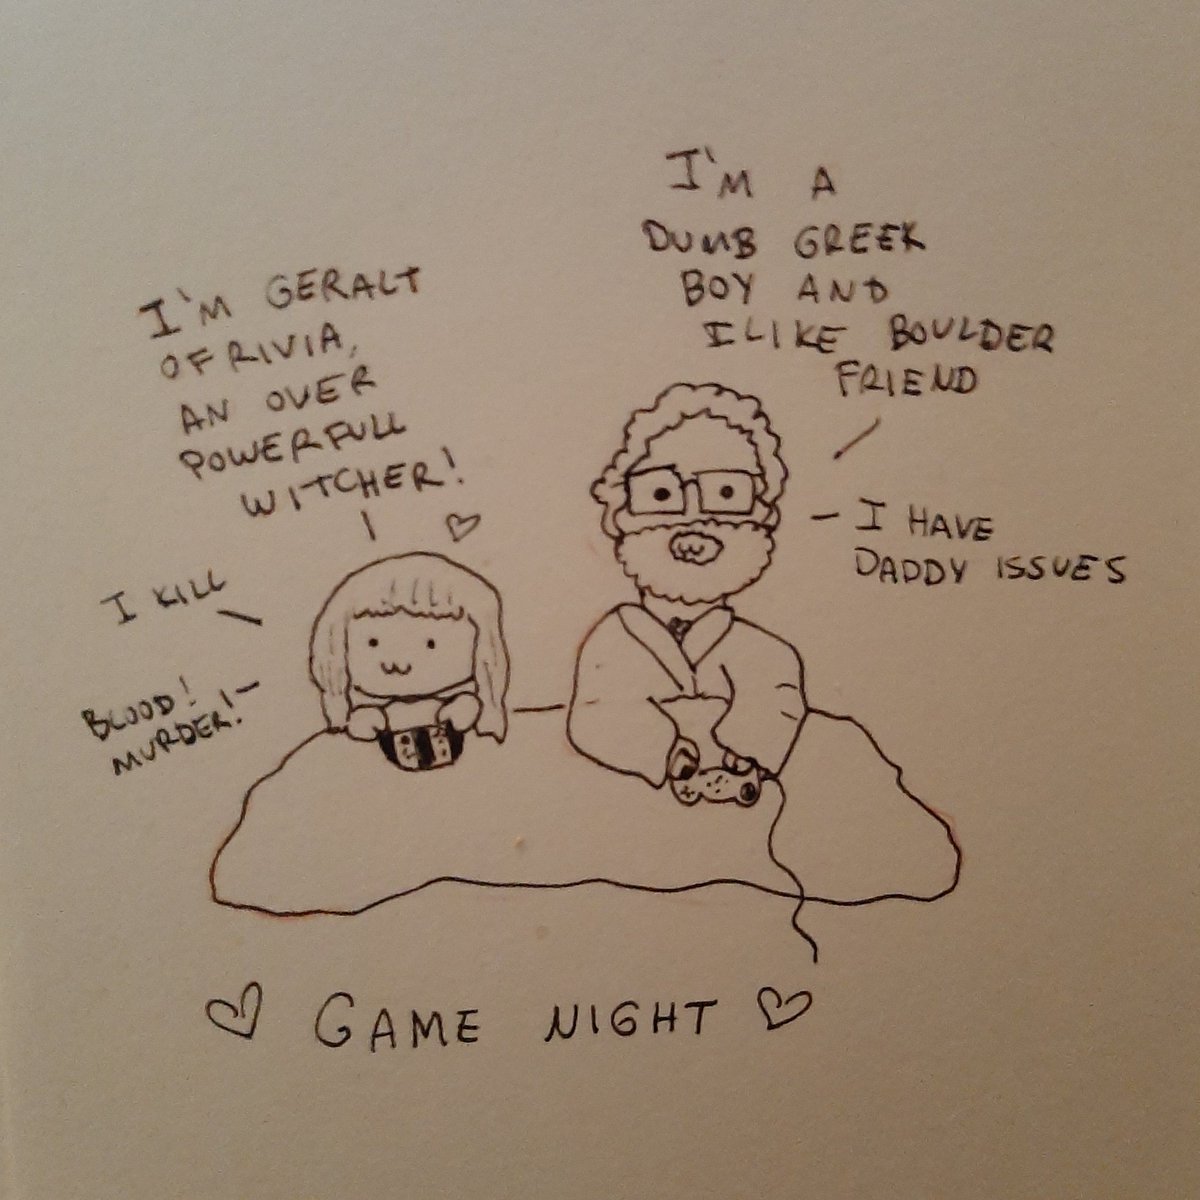 I'M GERALT
OF RIVIA,
AN OVER
POWERFULL
WITCHER!
I KILL
BLOOD!
MURDER!
I'M A
DUMB GREEK
BOY AND
I LIKE BOULDER
FRIEND
I HAVE
DADDY ISSUES
GAME NIGHT